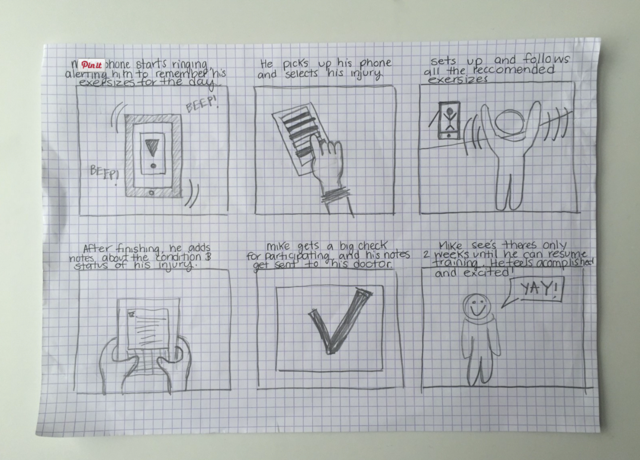 Pin it phone starts ringing,
alerting him to remember his
exersizes for the day.
BEEP!
BEEP!
He picks up his phone
and selects his injury.
sets up and follows
all the reccomended
exersizes
After finishing, he adds
notes about the condition &
status of his injury.
Mike gets a big check
for participating, and his notes
get sent to his doctor.
Mike see's theres only
2 weeks until he can resume
training. He feels acomplished
and excited!
YAY!